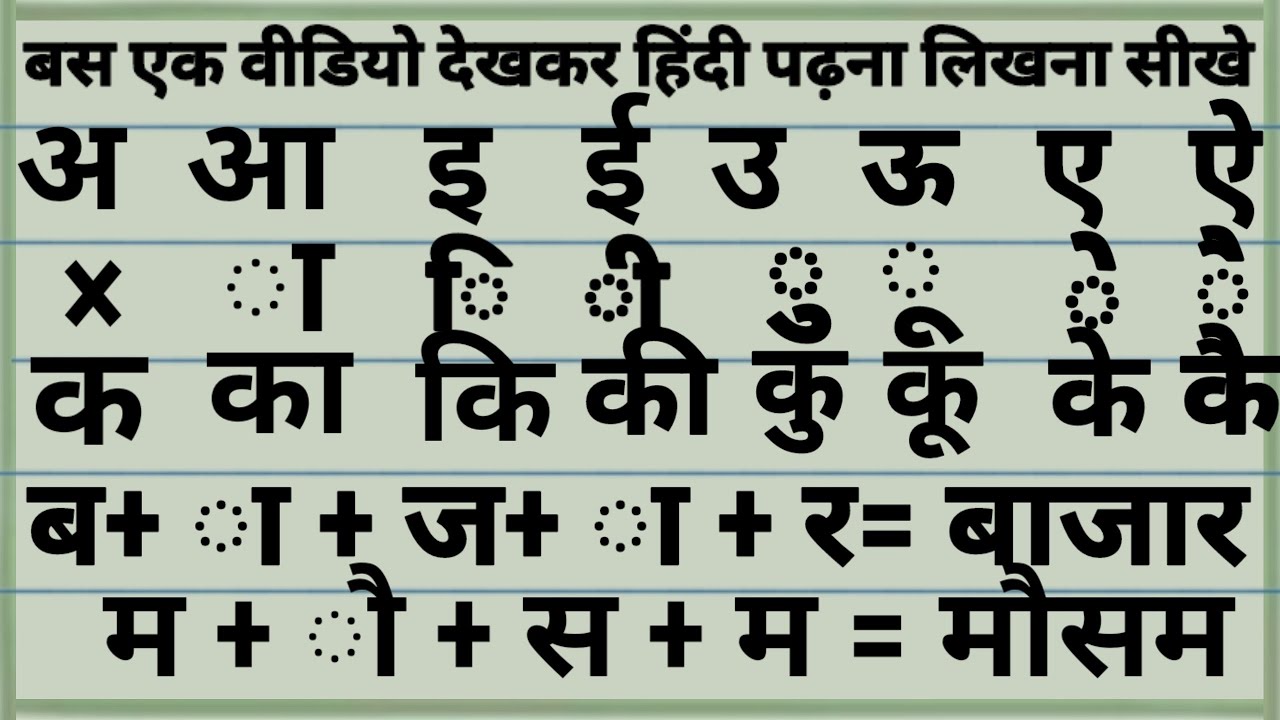 बस एक वीडियो देखकर हिंदी पढ़ना लिखना सीखे
अ आ इ ई उ ऊ ए ऐ
× ा ि ी ु ू े ै
क का कि की कु कू के कै
ब+ ा + ज+ ा + र= बाजार
म + ौ + स + म = मौसम